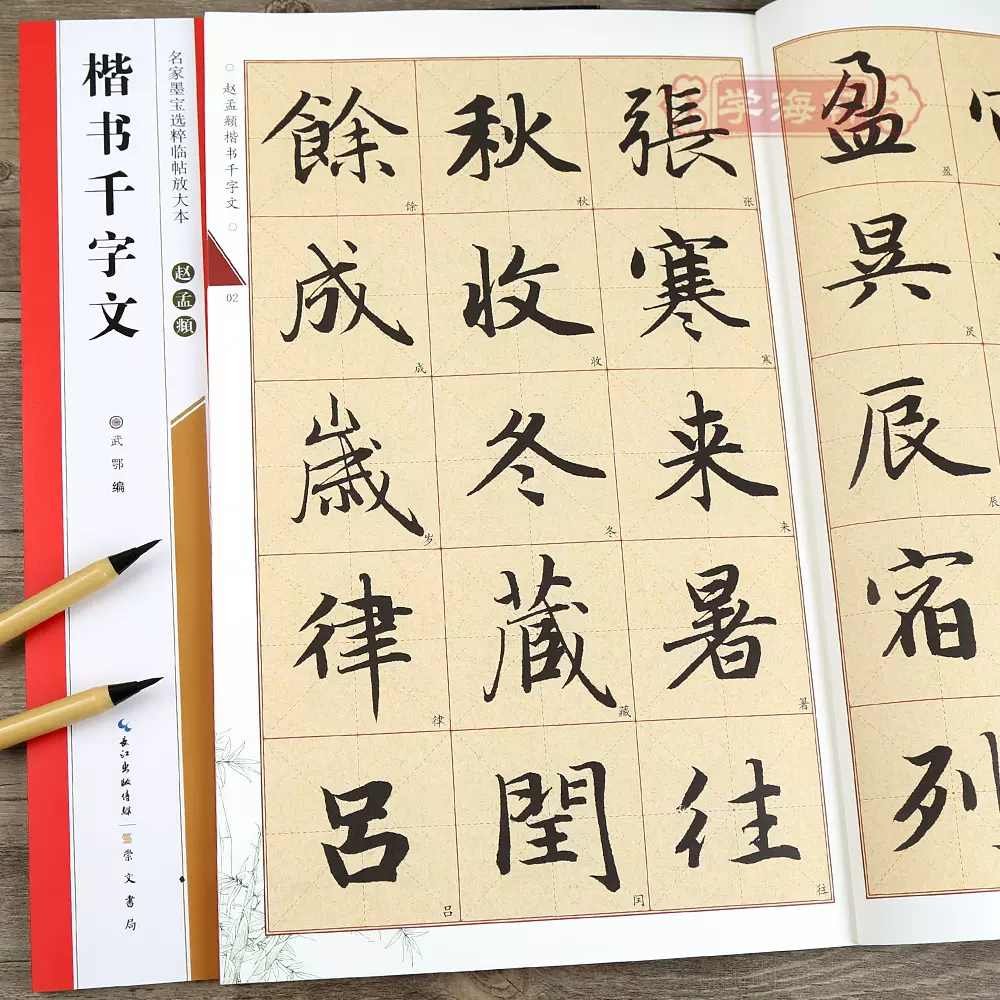 楷书千字文
名家墨宝选粹临帖放大本
赵孟頫
武鄂 编
长江出版传媒
崇文书局
赵孟頫楷书千字文
02
盈昃辰宿列
盈
昃
辰
張寒来暑往
张
寒
来
暑
往
秋收冬藏閏
秋
收
冬
藏
闰
餘成歲律呂
馀
成
岁
律
吕
学海